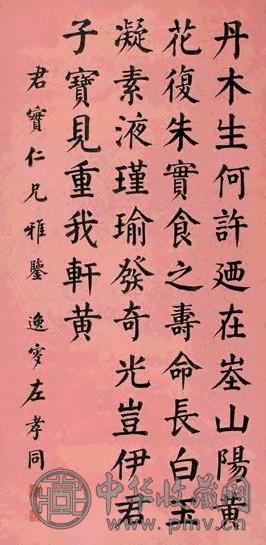 丹木生何許廼在峚山陽黄
花復朱實食之壽命長白玉
凝素液瑾瑜發奇光豈伊君
子寶見重我軒黄
君實仁兄雅鑒 逸叟左孝同
中华收藏网
www.pmv.cn